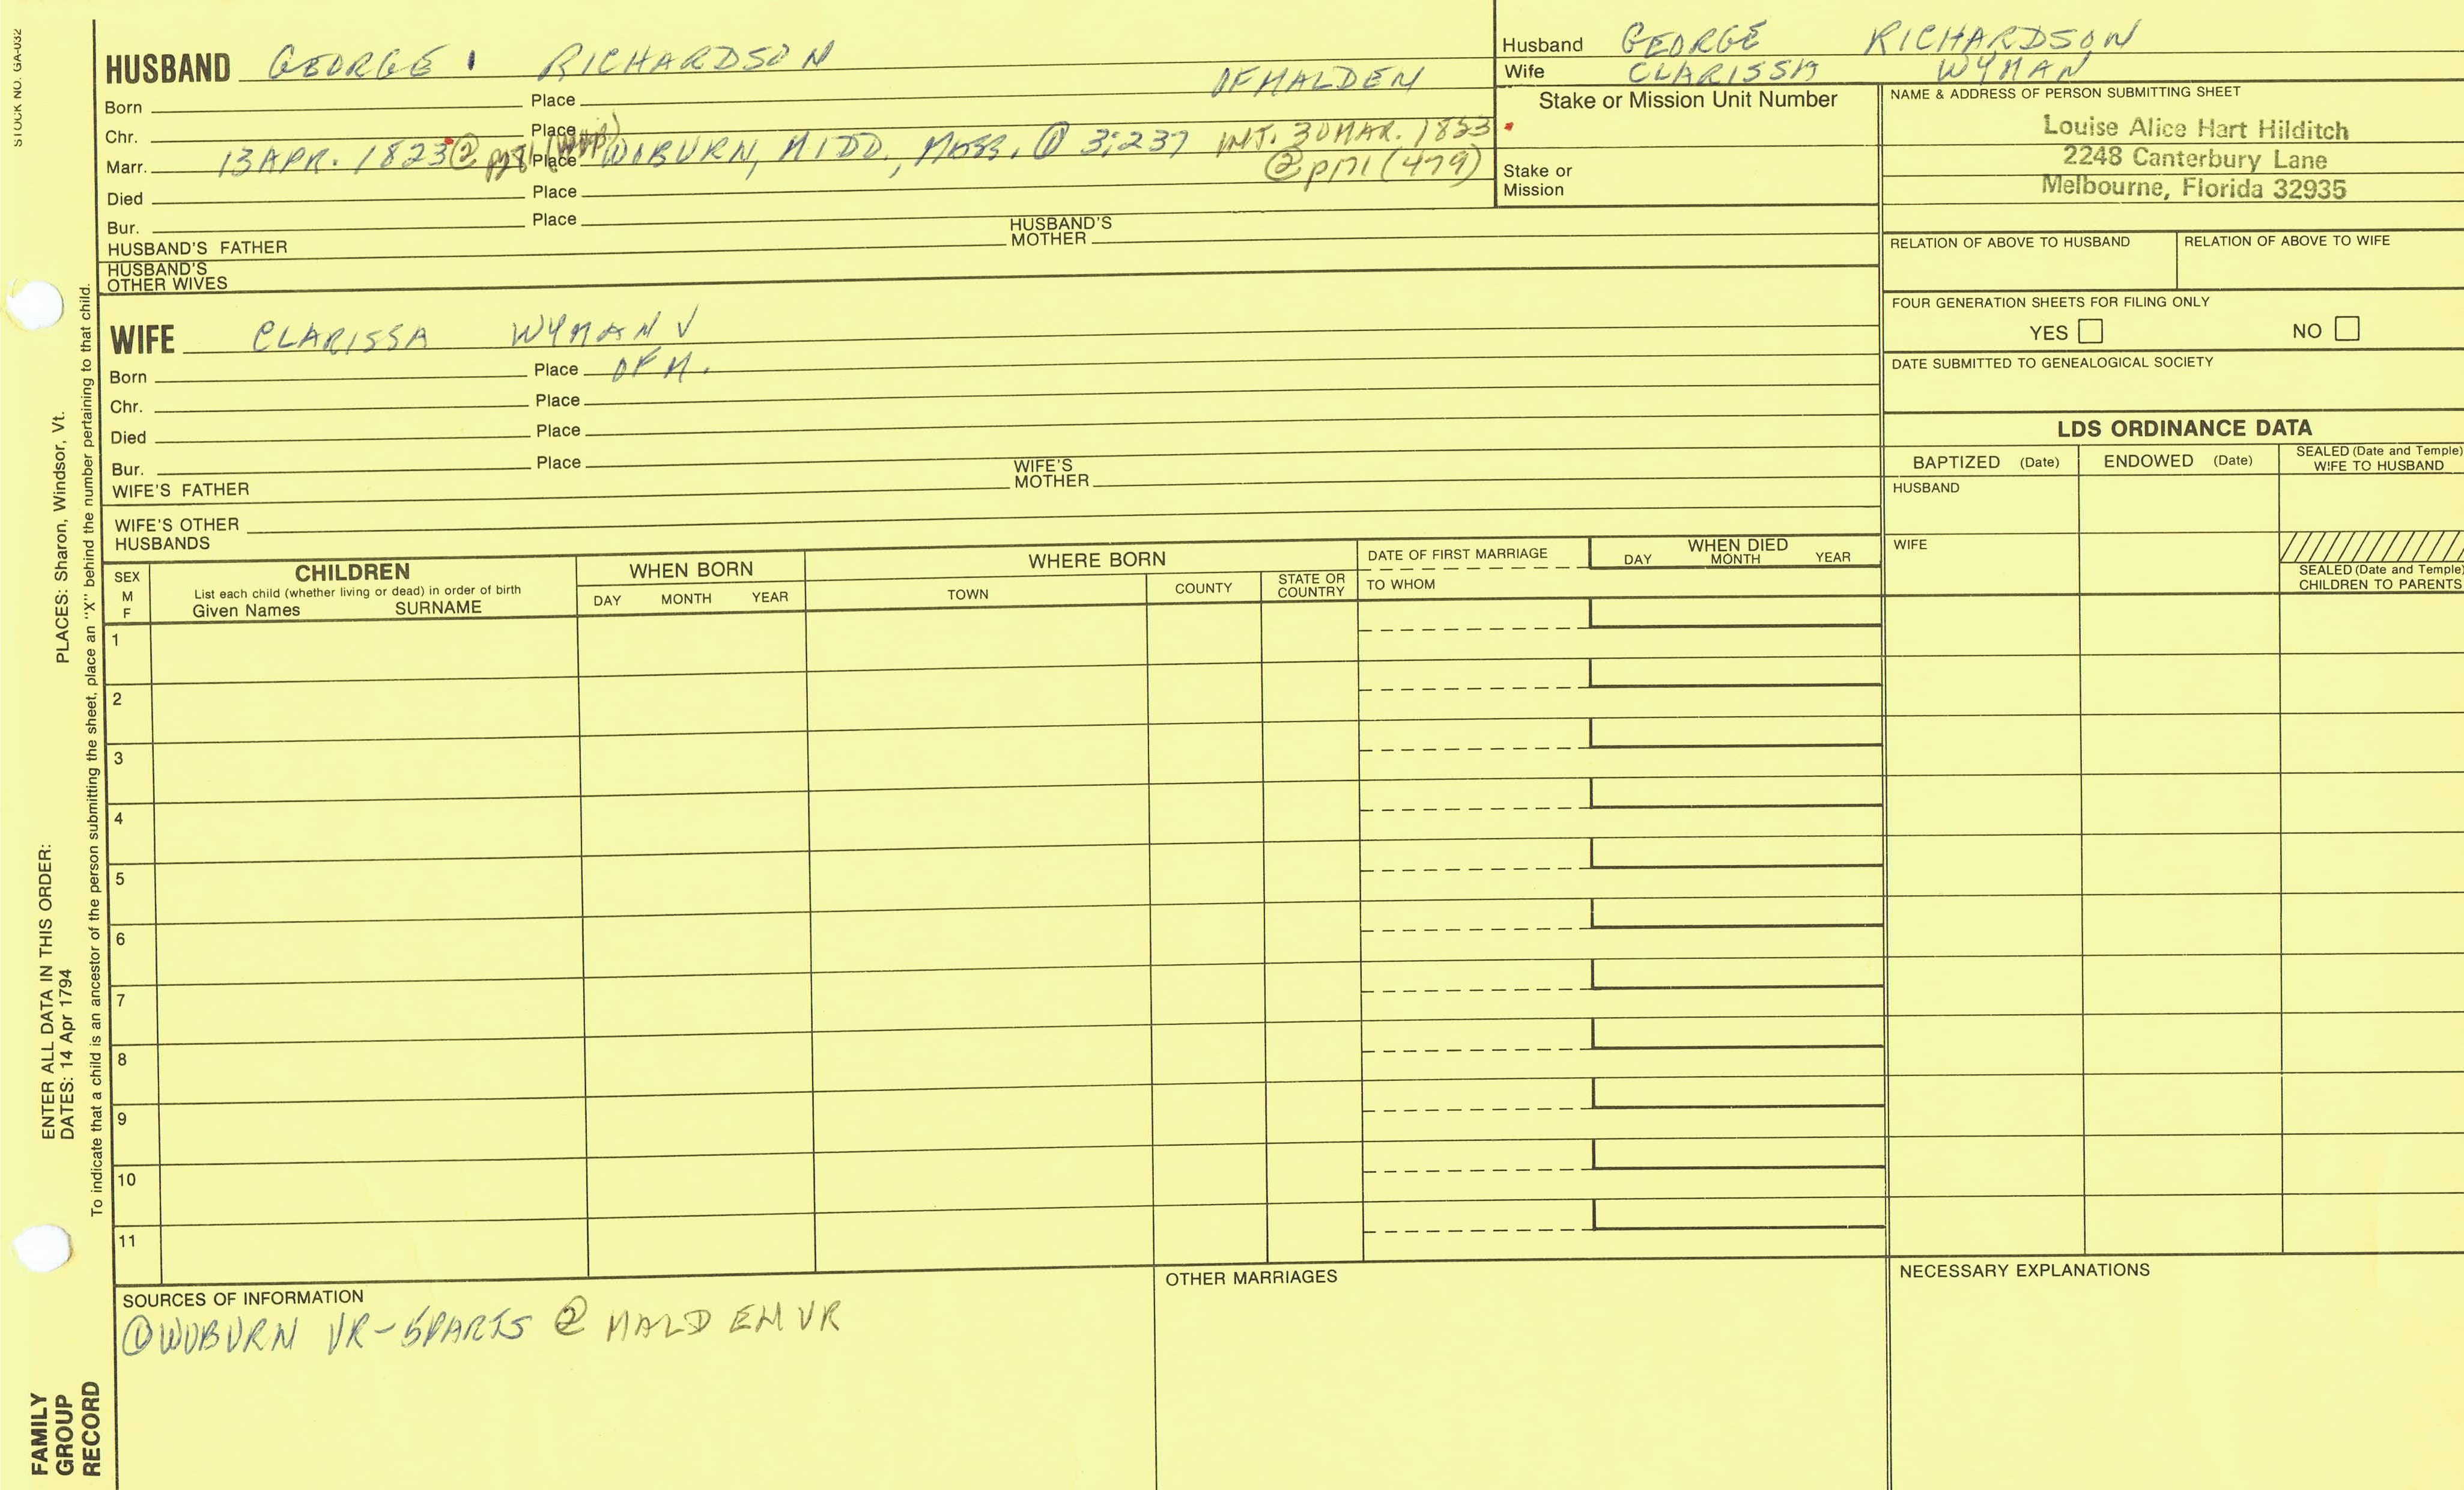 STOCK NO. GA-032
HUSBAND GEORGE RICHARDSON
OF MALDEN
Born Place
Chr. Place
Marr. 13 APR. 1823 ② Place WOBURN, MIDD., MASS. ① 3:237 INT. 30 MAR. 1823
② p171 (479)
Died Place
Bur. Place
HUSBAND'S FATHER HUSBAND'S MOTHER
HUSBAND'S OTHER WIVES
Husband GEORGE RICHARDSON
Wife CLARISSA WYMAN
Stake or Mission Unit Number
Stake or Mission
NAME & ADDRESS OF PERSON SUBMITTING SHEET
Louise Alice Hart Hilditch
2248 Canterbury Lane
Melbourne, Florida 32935
RELATION OF ABOVE TO HUSBAND RELATION OF ABOVE TO WIFE
FOUR GENERATION SHEETS FOR FILING ONLY
YES NO
DATE SUBMITTED TO GENEALOGICAL SOCIETY
WIFE CLARISSA WYMAN √
Born Place OF M.
Chr. Place
Died Place
Bur. Place
WIFE'S FATHER WIFE'S MOTHER
WIFE'S OTHER HUSBANDS
LDS ORDINANCE DATA
BAPTIZED (Date) ENDOWED (Date) SEALED (Date and Temple) WIFE TO HUSBAND
HUSBAND
WIFE
SEALED (Date and Temple) CHILDREN TO PARENTS
SEX M F
CHILDREN
List each child (whether living or dead) in order of birth
Given Names SURNAME
WHEN BORN
DAY MONTH YEAR
WHERE BORN
TOWN COUNTY STATE OR COUNTRY
DATE OF FIRST MARRIAGE
TO WHOM
WHEN DIED
DAY MONTH YEAR
1
2
3
4
5
6
7
8
9
10
11
SOURCES OF INFORMATION
① WOBURN VR-5 PARTS ② MALDEN VR
OTHER MARRIAGES
NECESSARY EXPLANATIONS
PLACES: Sharon, Windsor, Vt.
ENTER ALL DATA IN THIS ORDER:
DATES: 14 Apr 1794
To indicate that a child is an ancestor of the person submitting the sheet, place an "X" behind the number pertaining to that child.
FAMILY
GROUP
RECORD